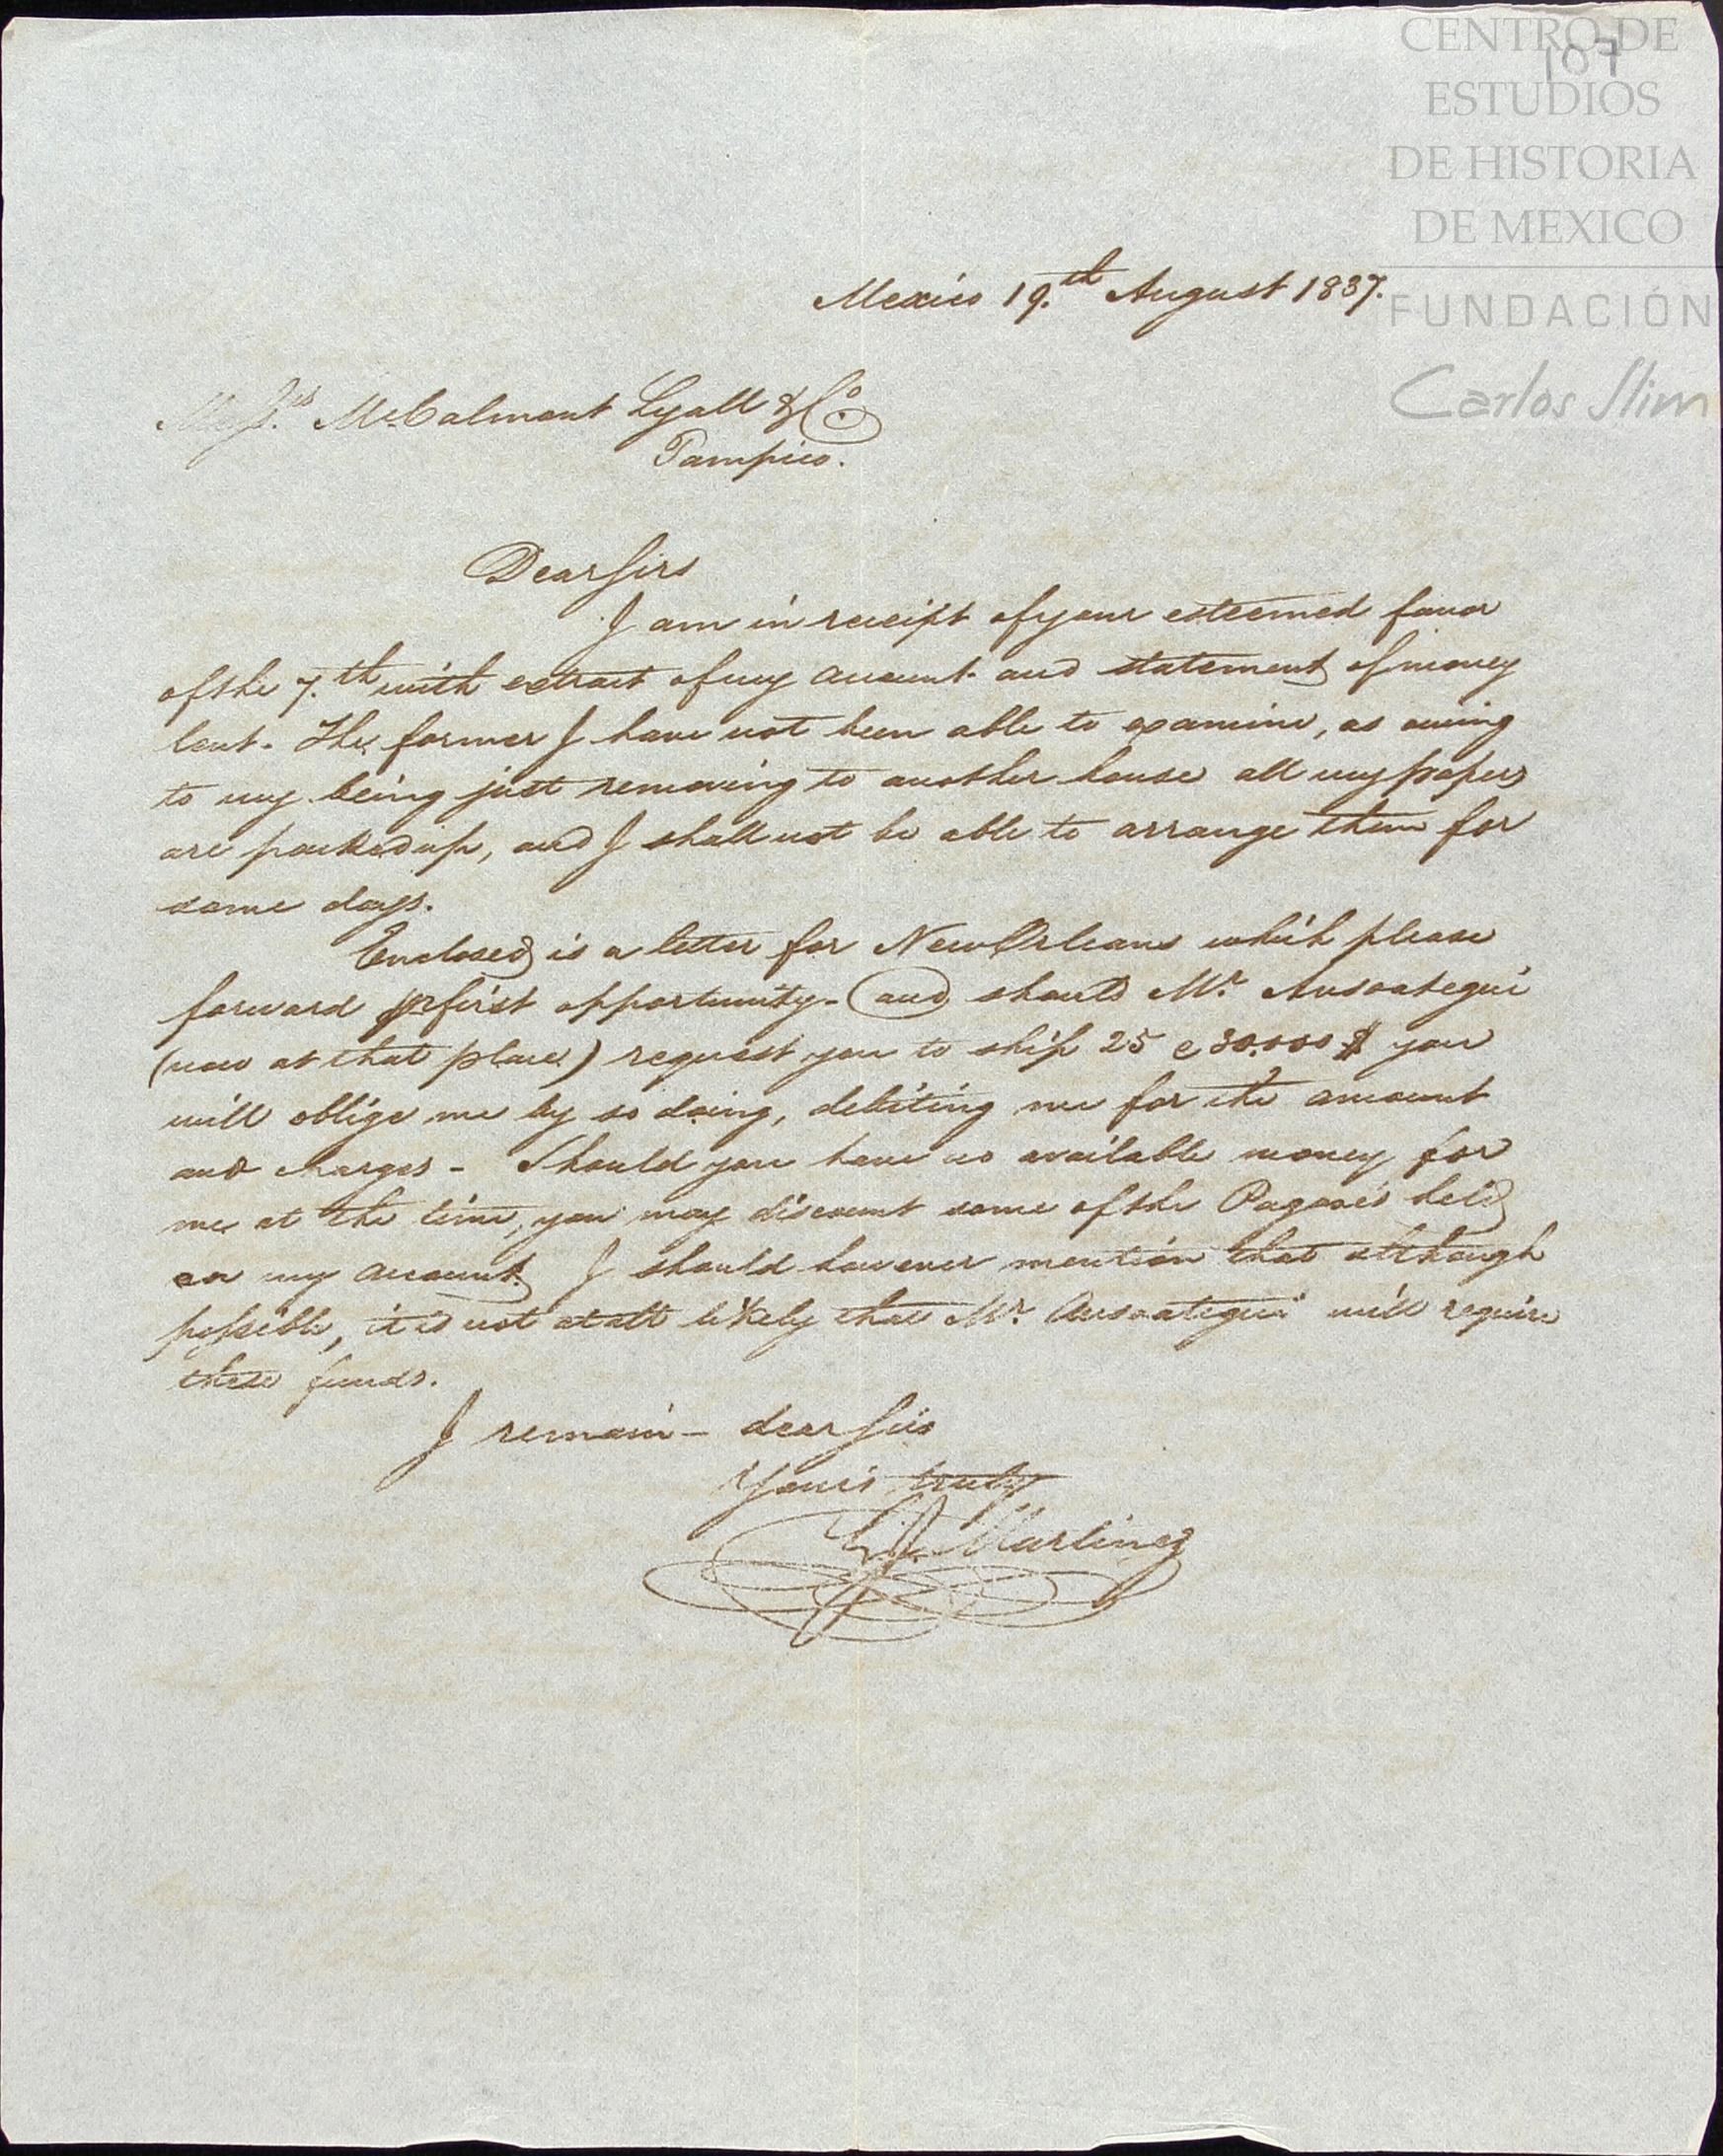 CENTRO DE
107
ESTUDIOS
DE HISTORIA
DE MEXICO
FUNDACIÓN
Carlos Slim
Mexico 19.th August 1837.
Messrs. McCalmont Lyall & Co.
Tampico.
Dear Sirs
I am in receipt of your esteemed favor
of the 7.th with extract of my account and statement of money
lent. The former I have not been able to examine, as owing
to my being just removing to another house all my papers
are packed up, and I shall not be able to arrange them for
some days.
Enclosed is a letter for New Orleans which please
forward pr first opportunity - and should Mr. Ansoategui
(now at that place) request you to ship 25 @ 30.000 $ you
will oblige me by so doing, debiting me for the amount
and charges - Should you have no available money for
me at the time, you may discount some of the Pagarés held
on my account. I should however mention that although
possible, it is not at all likely that Mr. Ansoategui will require
these funds.
I remain - dear Sirs
Yours truly
Martinez